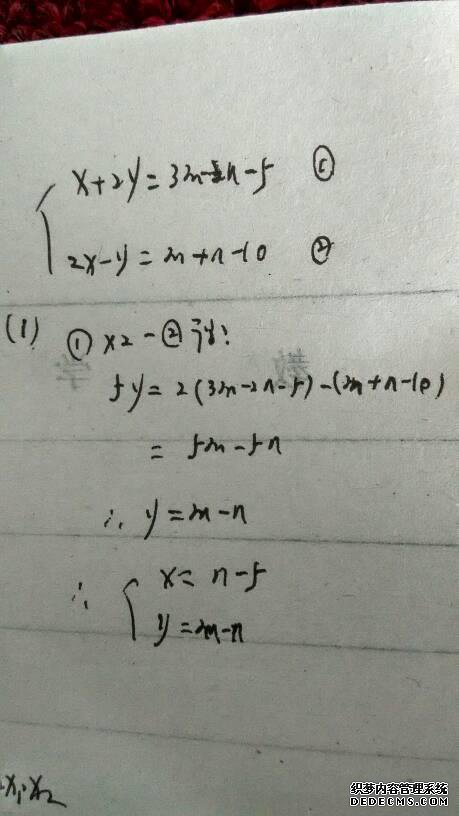 x+2y=3m-2n-5 ①
2x-y=m+n-10 ②
(1) ①×2-②得:
5y=2(3m-2n-5)-(m+n-10)
=5m-5n
∴ y=m-n
∴ x=n-5
y=m-n
教 学
x₁·x₂
织梦内容管理系统
DEDECMS.COM